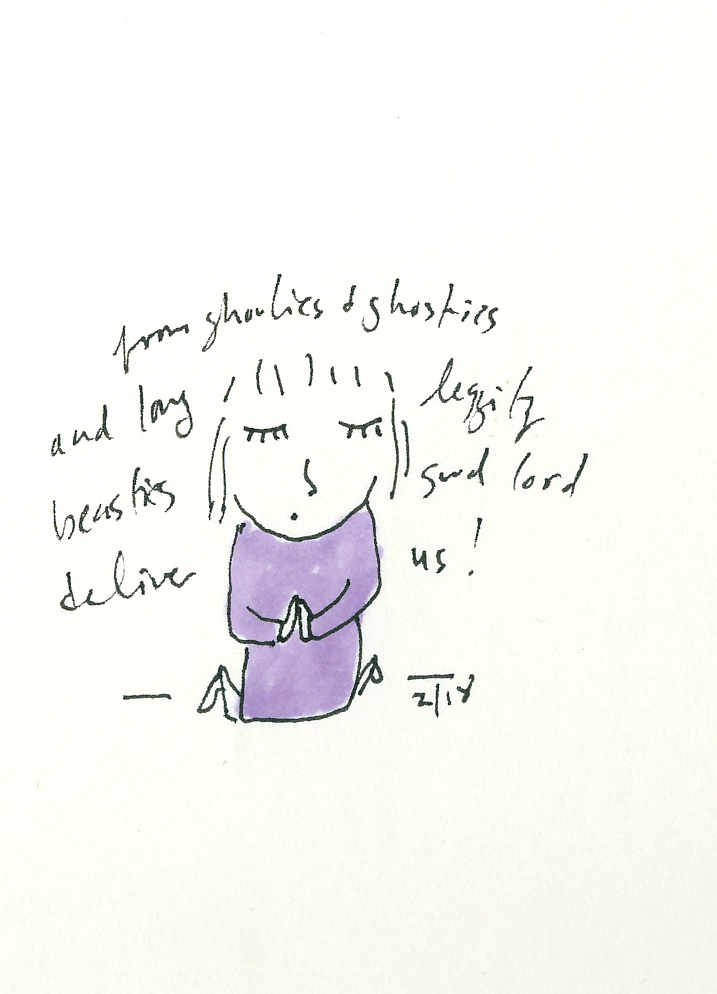 from ghoulies & ghosties
and long leggity
beasties good lord
deliver us!
2/18